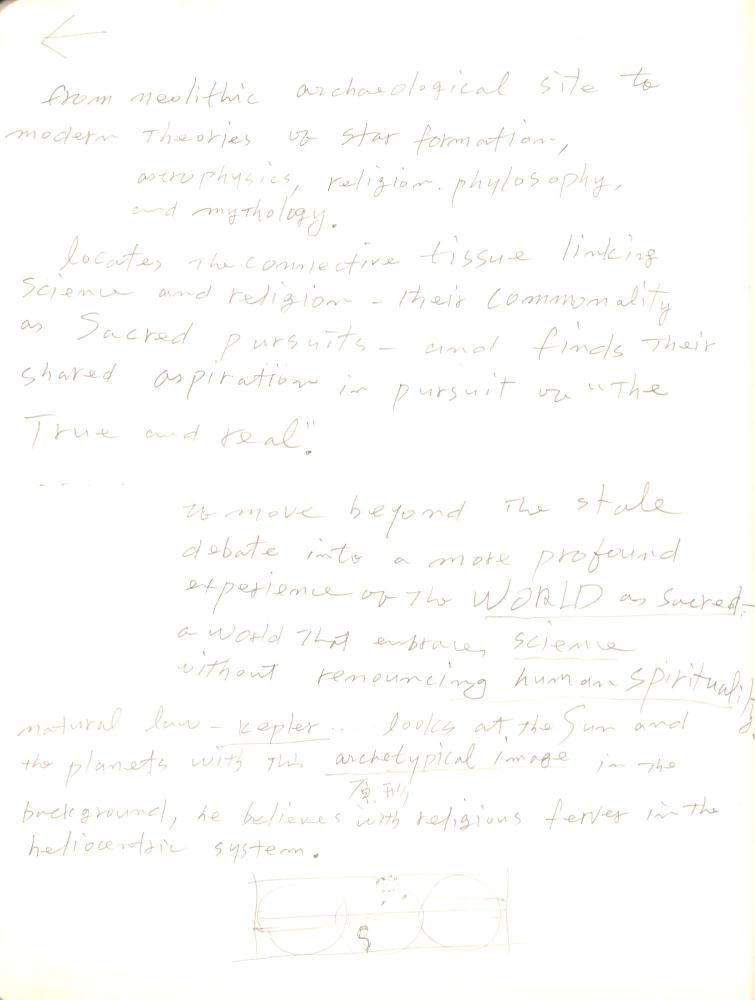 from neolithic archaeological site to
modern Theories of star formation,
astrophysics, religion. phylosophy,
and mythology.
locates The connective tissue linking
Science and religion - Their Commonality
as Sacred pursuits - and finds Their
shared aspiration in pursuit of "The
True and real".
to move beyond The stale
debate into a more profound
experience of The WORLD as sacred:
a world That embraces science
without renouncing human spirituality.
natural law - Kepler ... looks at the Sun and
the planets with This archetypical image in The
原型
background, he believes with religious ferver in the
heliocentric system.